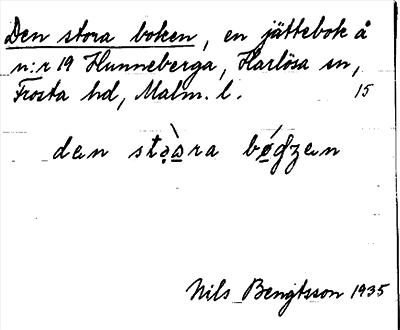 Den stora boken, en jättebok å
n:r 19 Hunneberga, Harlösa sn,
Frosta hd, Malm. l. 15
den stə̀ara bǿgzen
Nils Bengtsson 1935